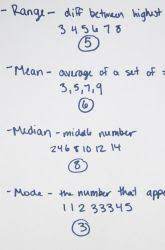 - Range - diff between highest
3 4 5 6 7 8
5
- Mean - average of a set of
3, 5, 7, 9
6
- Median - middle number
2 4 6 8 10 12 14
8
- Mode - the number that appe
1 1 2 3 3 3 4 5
3